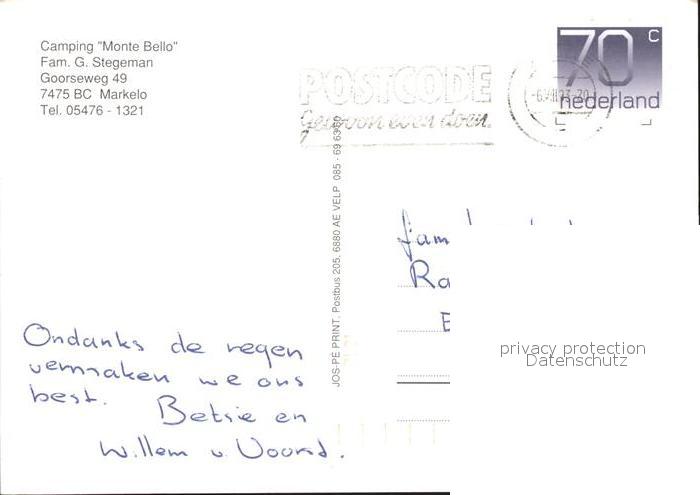 Camping "Monte Bello"
Fam. G. Stegeman
Goorseweg 49
7475 BC Markelo
Tel. 05476 - 1321
POSTCODE
Gewoon even doen.
70 c
nederland
JOS-PE PRINT, Postbus 205, 6880 AE VELP 085 - 69
fam
Ra
E
privacy protection
Datenschutz
Ondanks de regen
vermaken we ons
best. Betsie en
Willem v. Voorst.